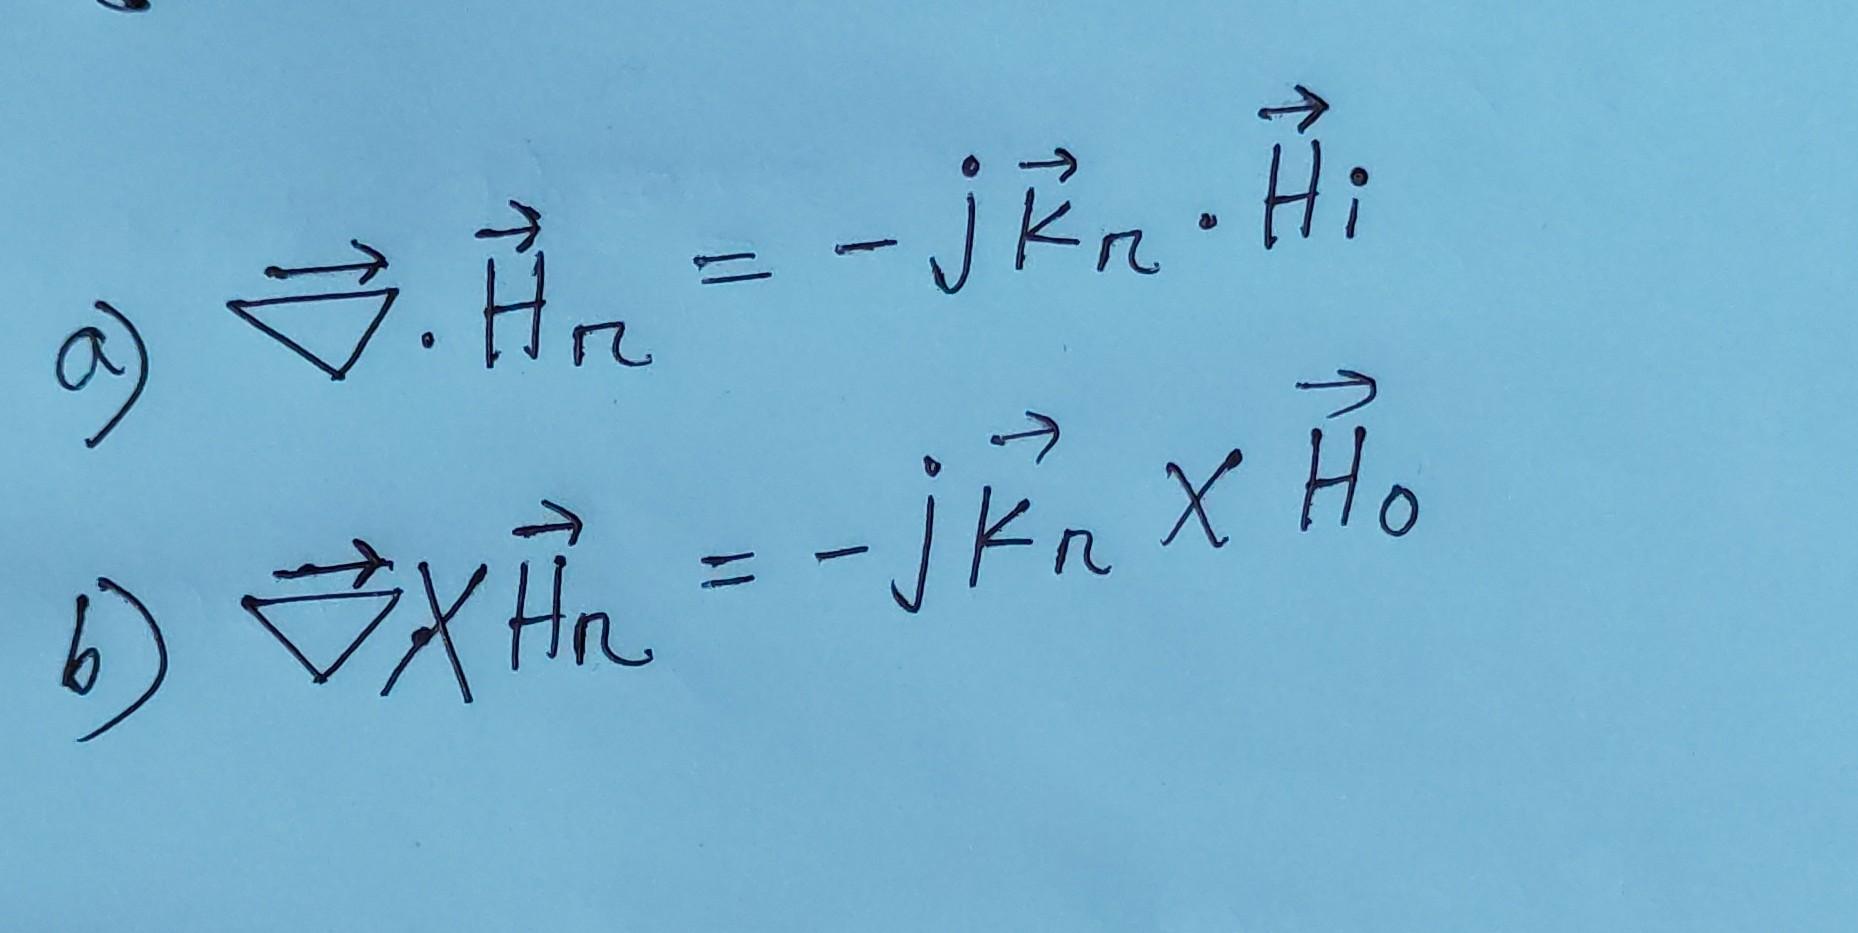 a) ∇⃗ · H⃗r = -j k⃗r · H⃗i
b) ∇⃗ × H⃗r = -j k⃗r × H⃗o